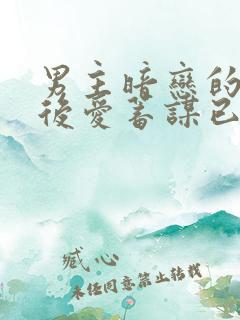 男主暗戀的
後愛蓄謀已
臧心
未經同意禁止轉載